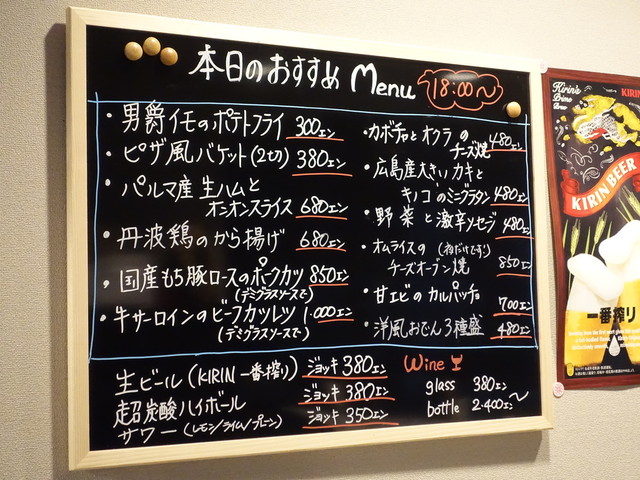 本日のおすすめ Menu 18:00〜
・男爵イモのポテトフライ 300エン
・ピザ風バケット(2切) 380エン
・パルマ産生ハムと
オニオンスライス 680エン
・丹波鶏のから揚げ 680エン
・国産もち豚ロースのポークカツ 850エン
(デミグラスソースで)
・牛サーロインのビーフカツレツ 1.000エン
(デミグラスソースで)
・カボチャとオクラの
チーズ焼 480エン
・広島産大きいカキと
キノコのミニグラタン 480エン
・野菜と激辛ソーセージ 480エン
・オムライスの(夜だけです!)
チーズオーブン焼 850エン
・甘エビのカルパッチョ 700エン
・洋風おでん3種盛 480エン
生ビール(KIRIN一番搾り) ジョッキ 380エン
超炭酸ハイボール ジョッキ 380エン
サワー(レモン/ライム/プレーン) ジョッキ 350エン
Wine
glass 380エン
bottle 2.400エン〜
Kirin's
Prime
Brew
KIRIN
KIRIN BEER
一番搾り